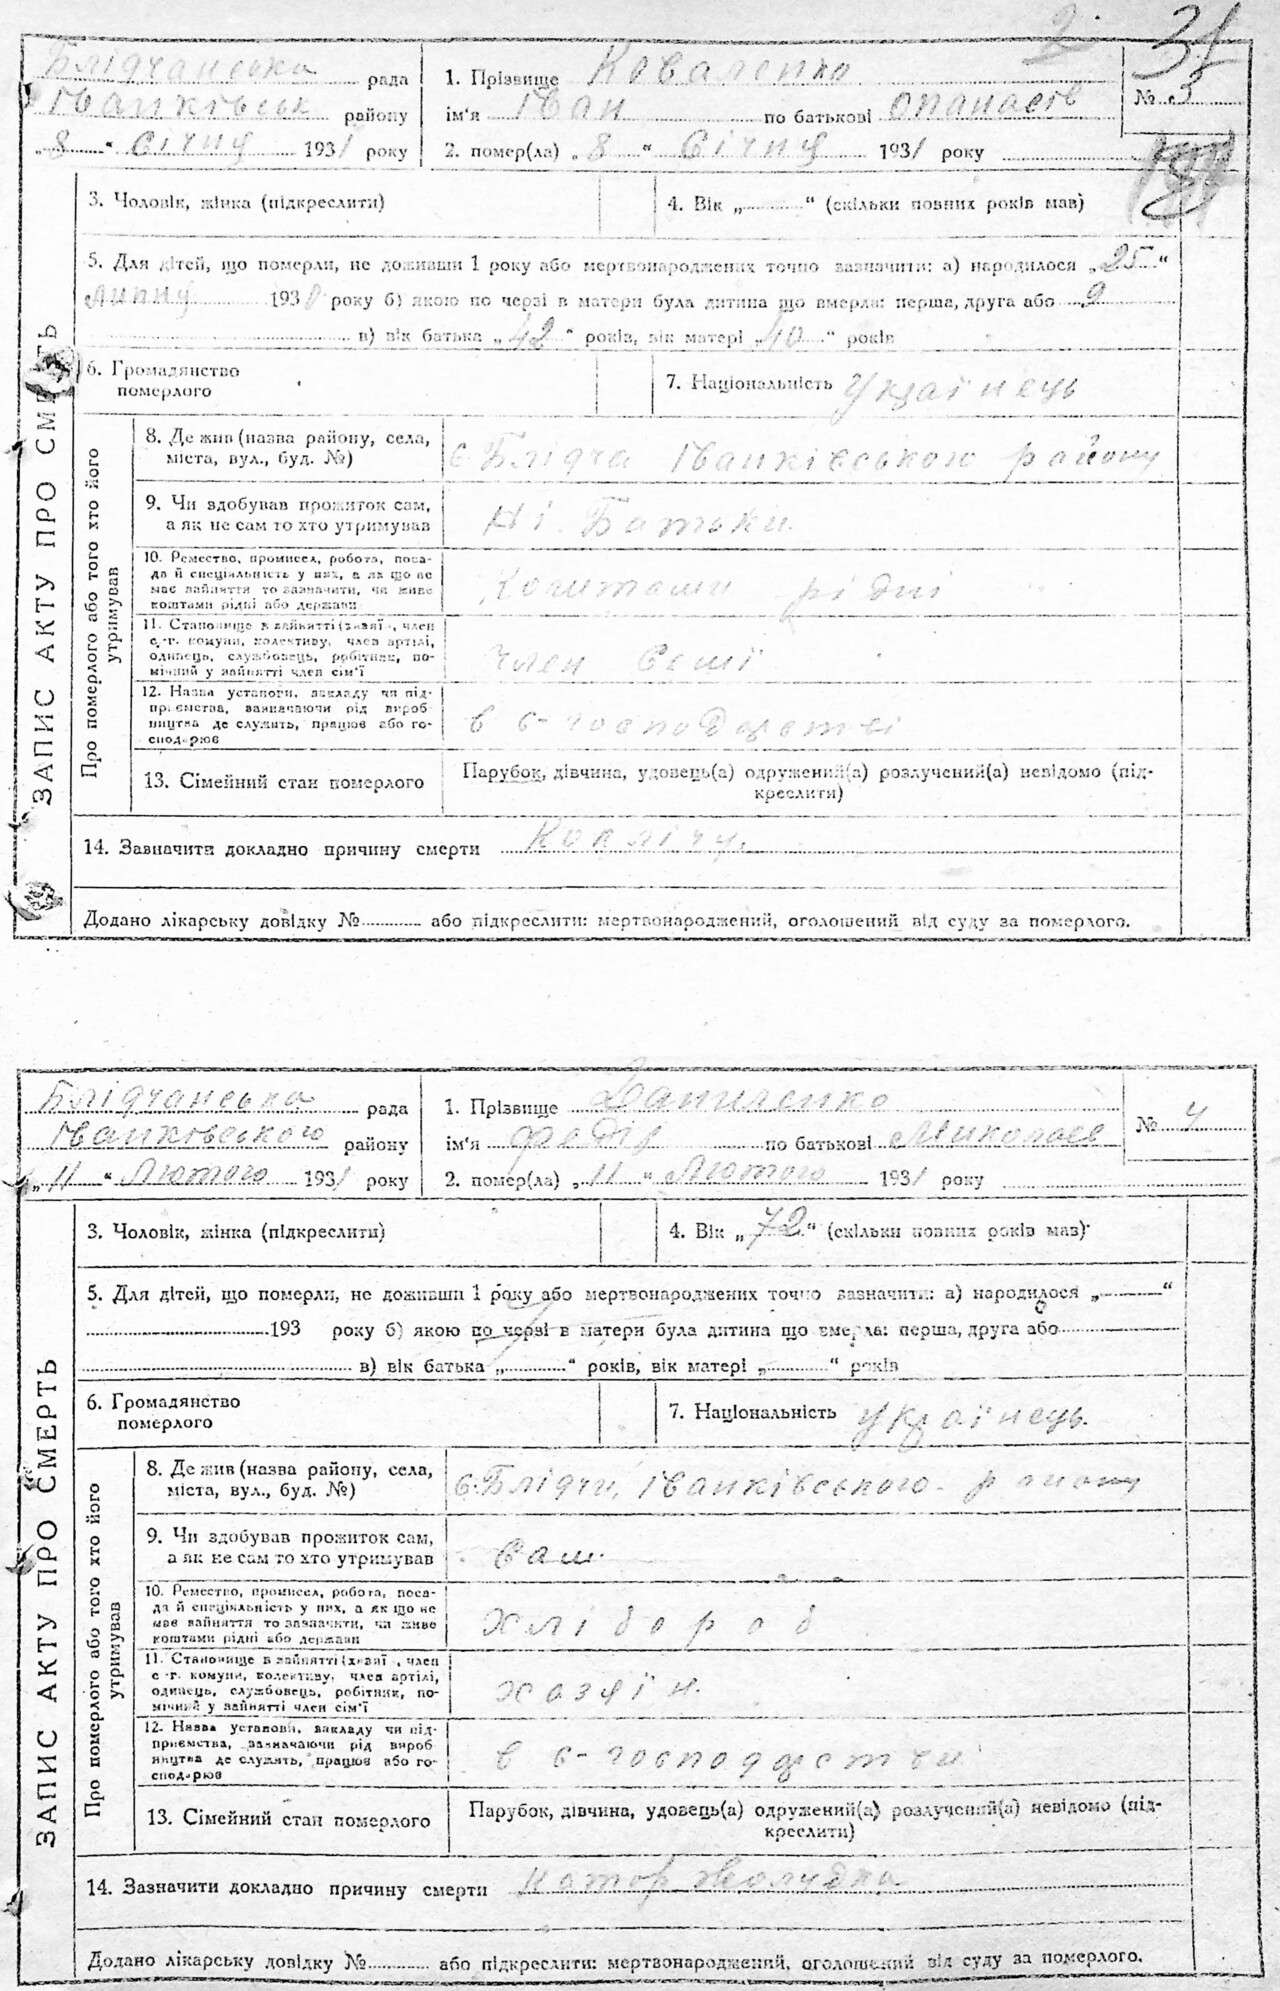 31
Блідчанська рада
1. Прізвище Коваленко
№ 3
Іванківськ району
ім'я Іван по батькові Опанасів
„8“ Січня 1931 року
2. помер(ла) „8“ Січня 1931 року
3. Чоловік, жінка (підкреслити)
4. Вік „ “ (скільки повних років мав)
5. Для дітей, що померли, не доживши 1 року або мертвонароджених точно зазначити: а) народилося „25“
липня 1930 року б) якою по черзі в матери була дитина що вмерла: перша, друга або 9
в) вік батька „42“ років, вік матері „40“ років
6. Громадянство
померлого
7. Національність Українець
ЗАПИС АКТУ ПРО СМЕРТЬ
Про померлого або того хто його
утримував
8. Де жив (назва району, села,
міста, вул., буд. №)
с. Блідча Іванківською району
9. Чи здобував прожиток сам,
а як не сам то хто утримував
Ні. Батьки
10. Ремество, промисел, робота, поса-
да й спеціяльність у них, а як що не
має зайняття то зазначити, чи живе
коштами рідні або держави
Коштами рідні
11. Становище в зайнятті (хазяї , член
с.-г. комуни, колективу, член артілі,
одинець, службовець, робітник, по-
мічний у зайнятті член сім'ї
член сем'ї
12. Назва установи, закладу чи під-
приємства, зазначаючи рід вироб
ництва де служить, працює або го-
сподарює
в с-господарстві
13. Сімейний стан померлого
Парубок, дівчина, удовець(а) одружений(а) розлучений(а) невідомо (під-
креслити)
14. Зазначити докладно причину смерти Коклюш
Додано лікарську довідку № або підкреслити: мертвонароджений, оголошений від суду за померлого.
Блідчанська рада
1. Прізвище Даниленко
№ 4
Іванковського району
ім'я Федір по батькові Миколаєв
„11“ Лютого 1931 року
2. помер(ла) „11“ Лютого 1931 року
3. Чоловік, жінка (підкреслити)
4. Вік „72“ (скільки повних років мав)
5. Для дітей, що померли, не доживши 1 року або мертвонароджених точно зазначити: а) народилося „ “
193 року б) якою по черзі в матери була дитина що вмерла: перша, друга або
в) вік батька „ “ років, вік матері „ “ років
6. Громадянство
померлого
7. Національність українець.
ЗАПИС АКТУ ПРО СМЕРТЬ
Про померлого або того хто його
утримував
8. Де жив (назва району, села,
міста, вул., буд. №)
с. Блідчи, Іванківського району
9. Чи здобував прожиток сам,
а як не сам то хто утримував
Сам.
10. Ремество, промисел, робота, поса-
да й спеціяльність у них, а як що не
має зайняття то зазначити, чи живе
коштами рідні або держави
хлібороб
11. Становище в зайнятті (хазяї , член
с.-г. комуни, колективу, член артілі,
одинець, службовець, робітник, по-
мічний у зайнятті член сім'ї
хазяїн.
12. Назва установи, закладу чи під-
приємства, зазначаючи рід вироб
ництва де служить, працює або го-
сподарює
в с-господарстчи
13. Сімейний стан померлого
Парубок, дівчина, удовець(а) одружений(а) розлучений(а) невідомо (під-
креслити)
14. Зазначити докладно причину смерти Катар жолудка
Додано лікарську довідку № або підкреслити: мертвонароджений, оголошений від суду за померлого.